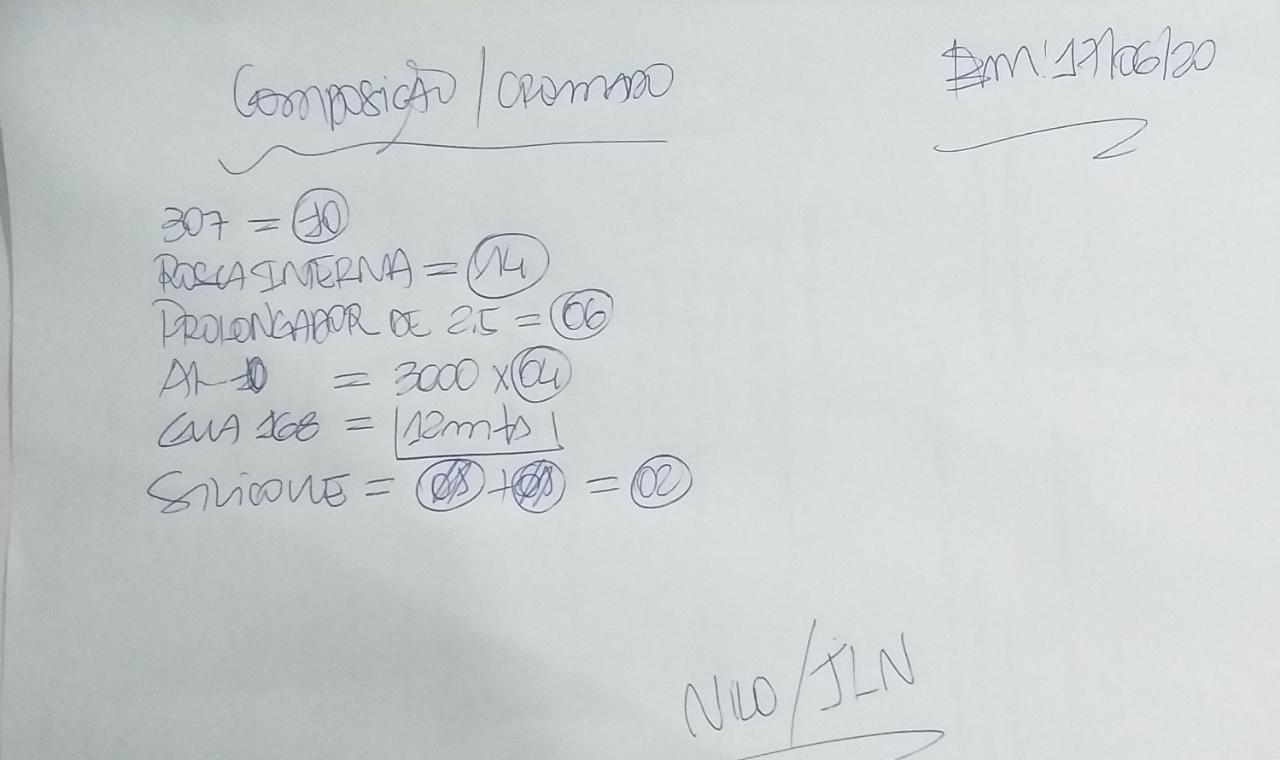 Composição / CROMADO
Em: 17/06/20
307 = 10
ROSCA INTERNA = 14
PROLONGADOR DE 2,5 = 06
AL 10 = 3000 x 04
GUIA 168 = 12mts
SILICONE = + = 02
NILO / JLN